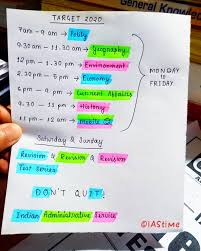 General Knowledge
TARGET 2020
7am - 9 am → Polity
9.30 am - 11.30 am → Geography
12 pm - 1.30 pm → Environment
2 pm - 5 pm → Economy
6 pm - 9 pm → Current Affairs
9.30 - 11 pm → History
11 pm - 12 am → Mobile
MONDAY
to
FRIDAY
Saturday & Sunday
Revision & Revision & Revision
Test Series
DON'T QUIT!
Indian Administrative Service
©IAStime